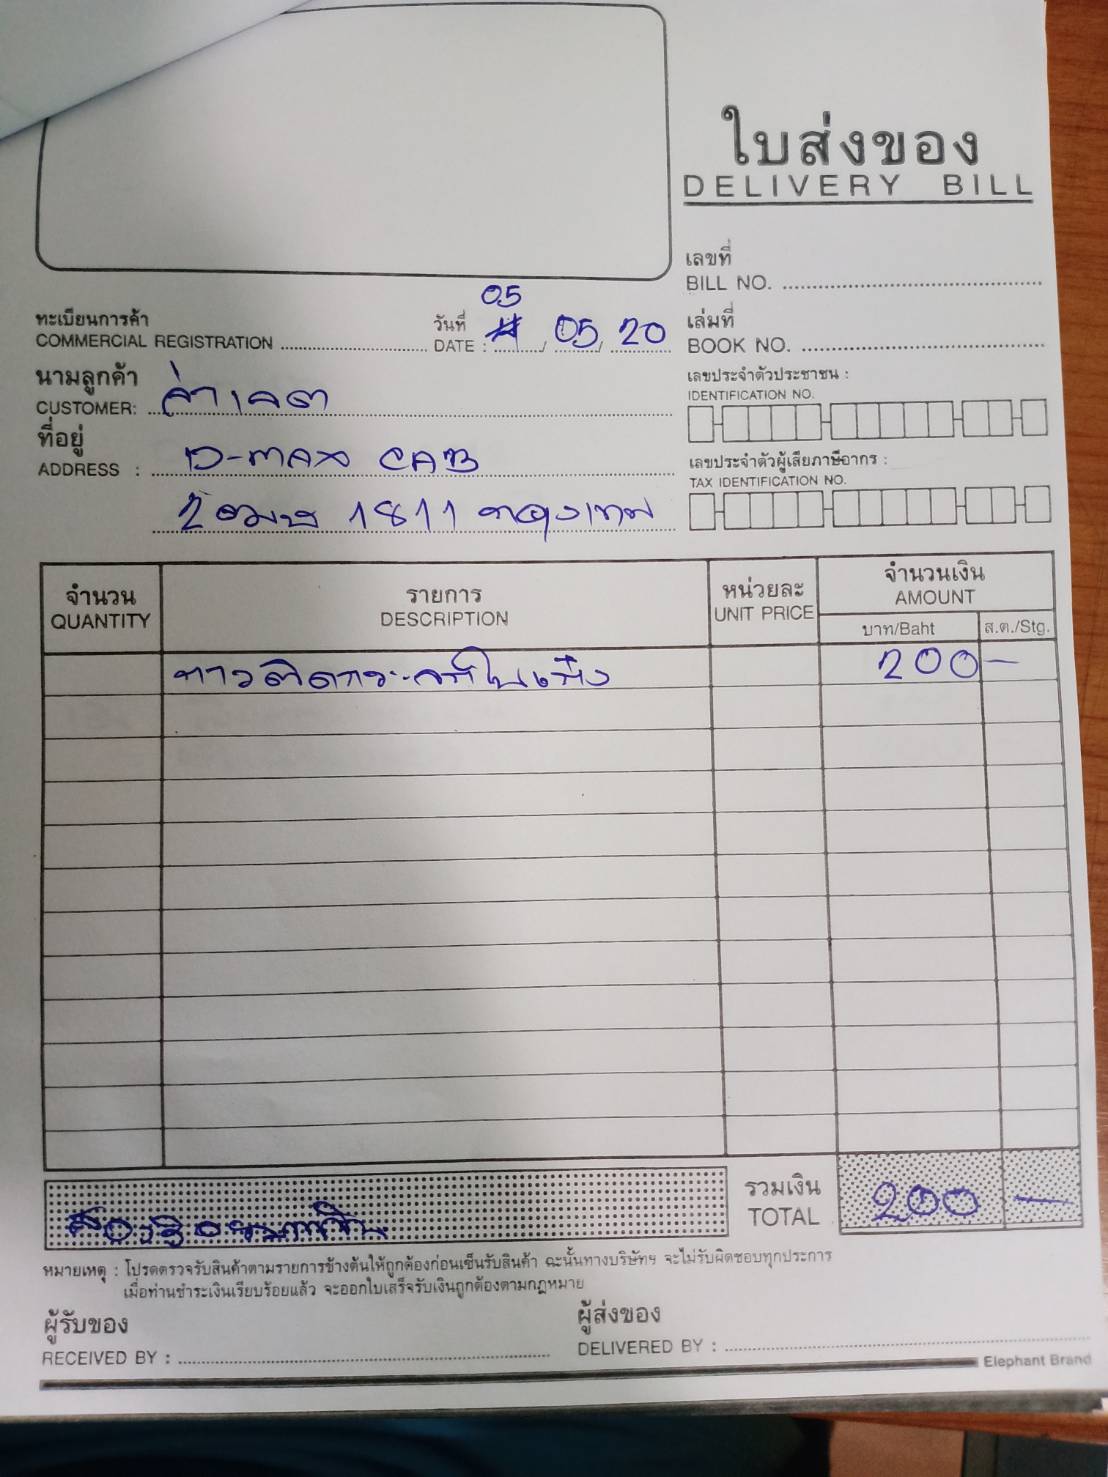 ใบส่งของ
DELIVERY BILL
เลขที่
BILL NO.
ทะเบียนการค้า
COMMERCIAL REGISTRATION
วันที่ 05
DATE : 05, 20
เล่มที่
BOOK NO.
นามลูกค้า
CUSTOMER:
ที่อยู่
ADDRESS : D-MAX CAB
2 1811 กรุงเทพ
เลขประจำตัวประชาชน :
IDENTIFICATION NO.
เลขประจำตัวผู้เสียภาษีอากร :
TAX IDENTIFICATION NO.
จำนวน
QUANTITY
รายการ
DESCRIPTION
หน่วยละ
UNIT PRICE
จำนวนเงิน
AMOUNT
บาท/Baht
ส.ต./Stg.
200 -
รวมเงิน
TOTAL
200 -
หมายเหตุ : โปรดตรวจรับสินค้าตามรายการข้างต้นให้ถูกต้องก่อนเซ็นรับสินค้า ฉะนั้นทางบริษัทฯ จะไม่รับผิดชอบทุกประการ
เมื่อท่านชำระเงินเรียบร้อยแล้ว จะออกใบเสร็จรับเงินถูกต้องตามกฎหมาย
ผู้รับของ
RECEIVED BY :
ผู้ส่งของ
DELIVERED BY :
Elephant Brand